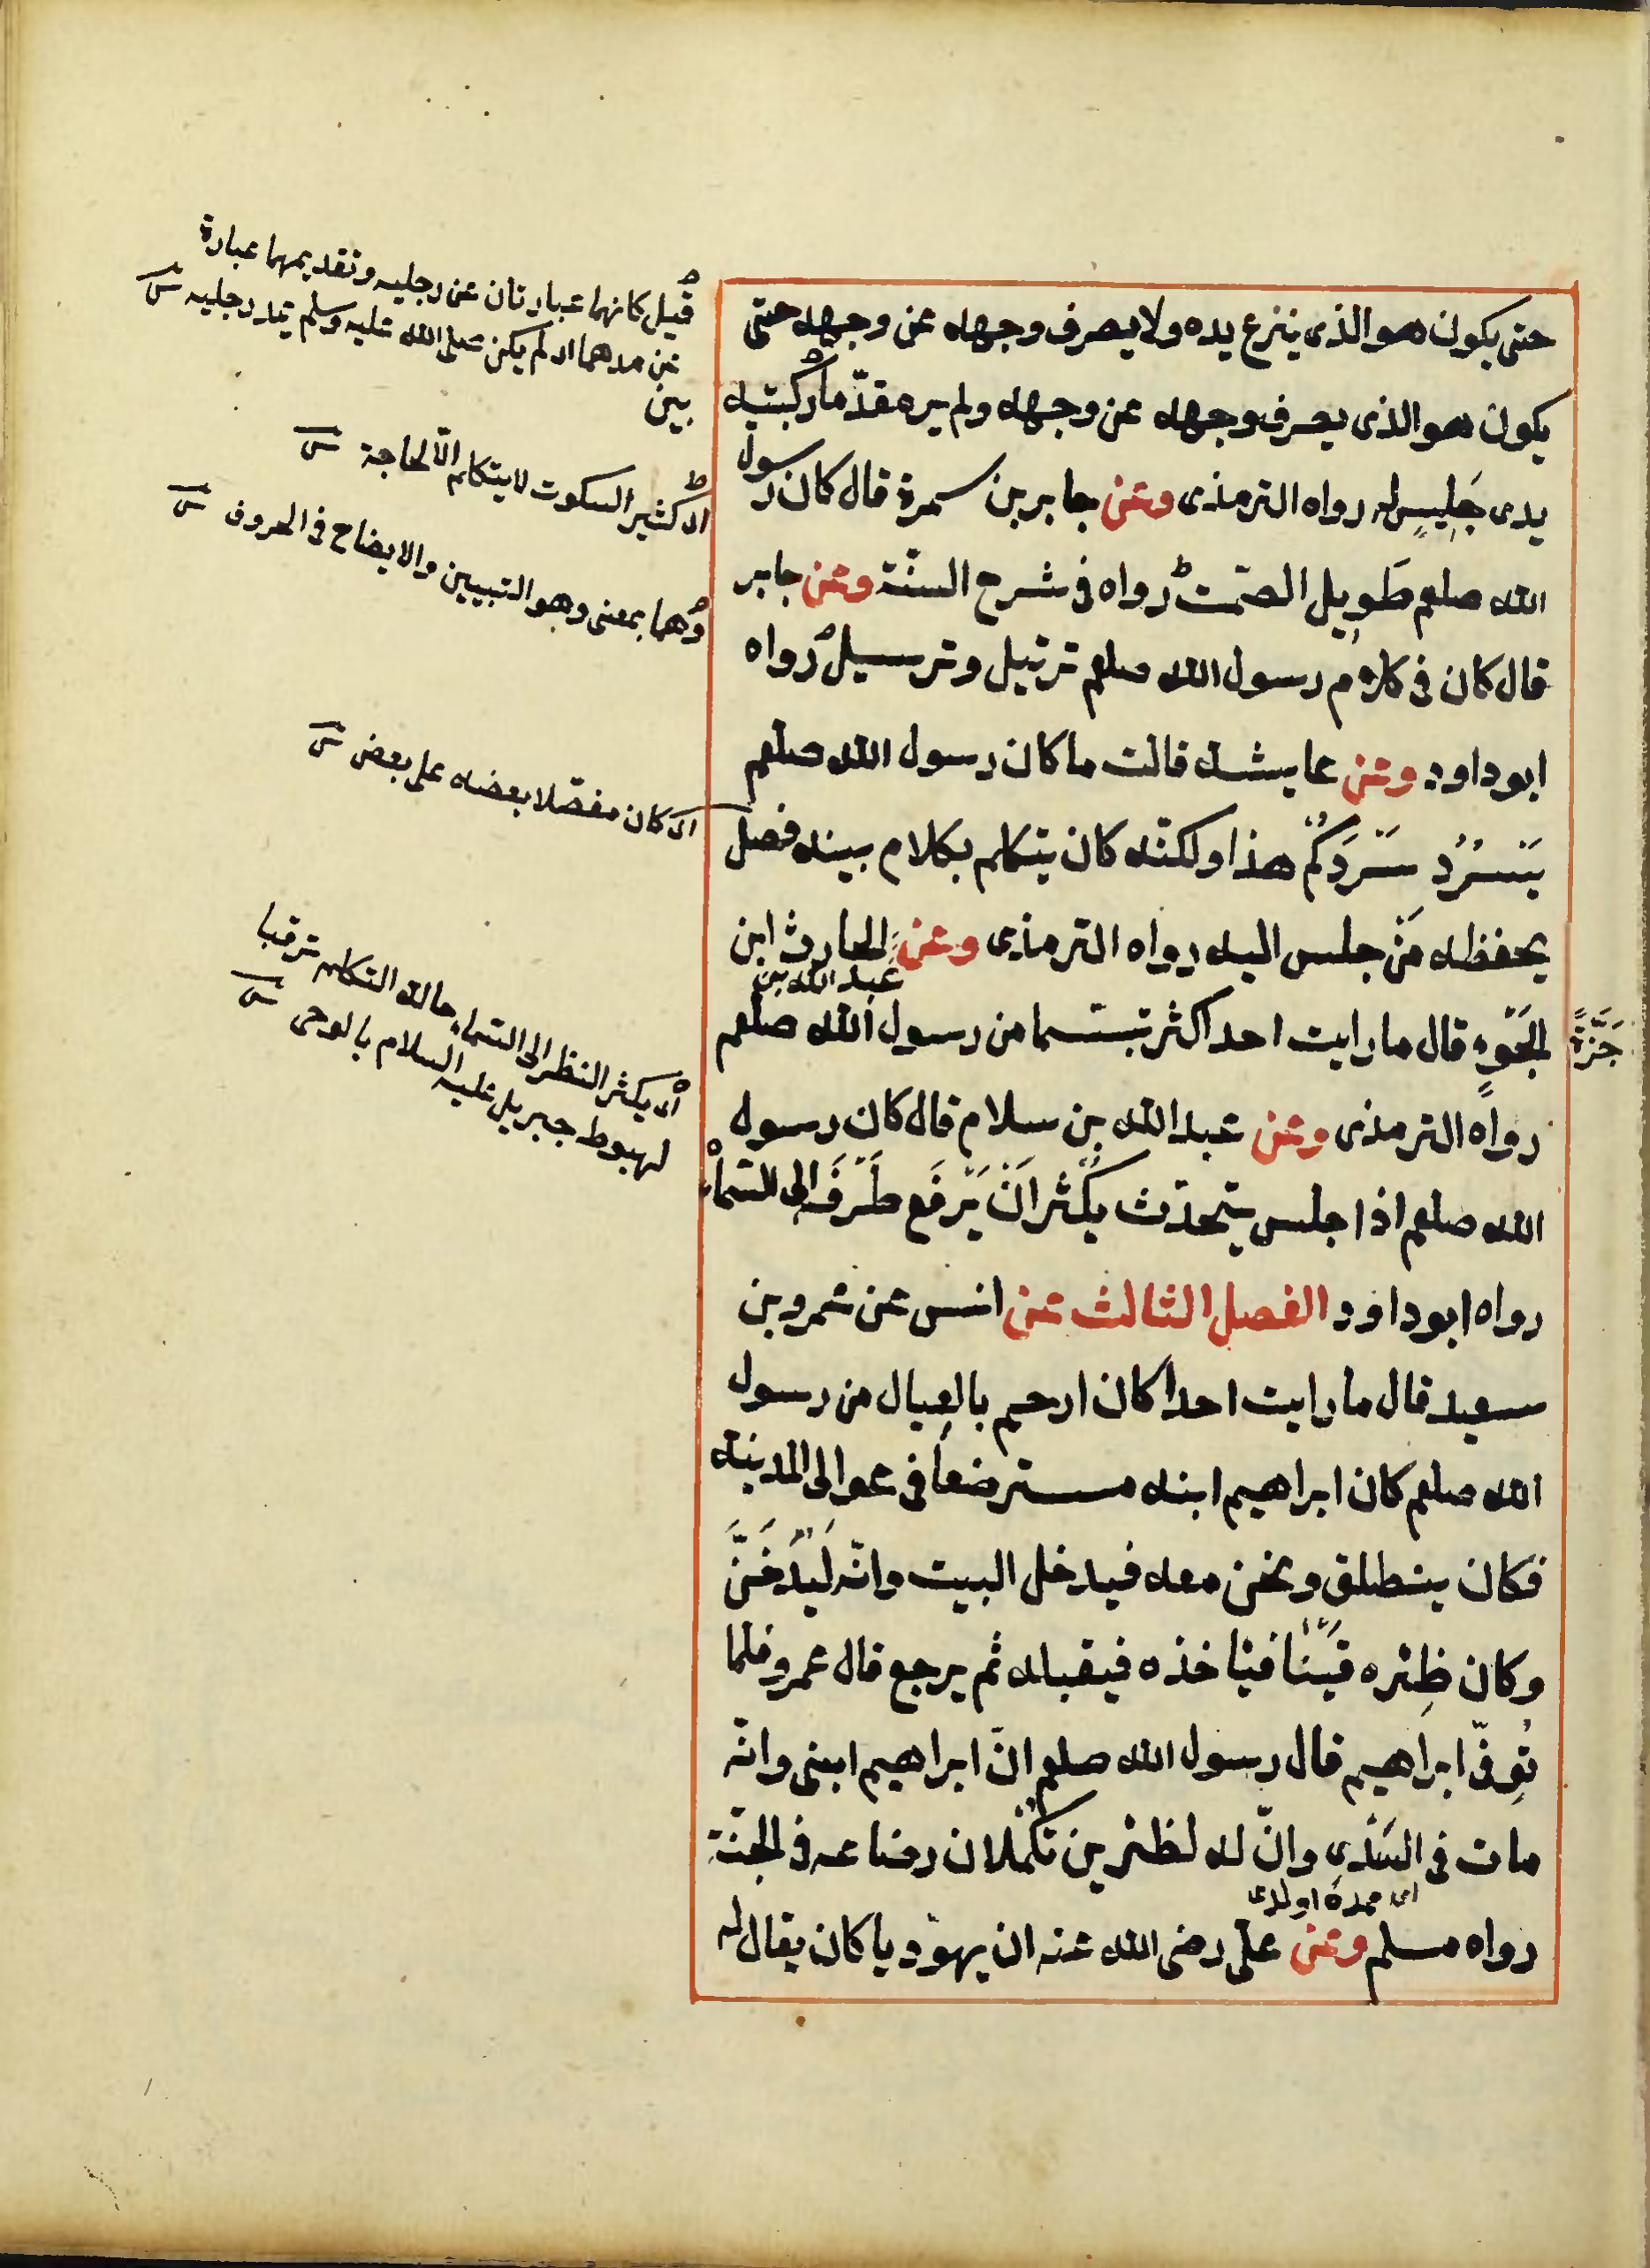 حتى يكون هو الذى ينزع يده ولا يصرف وجهه عن وجهه حتى
يكون هو الذى يصرف وجهه عن وجهه ولم ير مقدّما ركبتيه
يدى جَلِيسٍ له رواه الترمذى وعن جابر بن سمرة قال كان رسول
الله صلعم طَوِيل الصّمت رواه فى شرح السنّة وعن جابر
قال كان فى كلام رسول الله صلعم ترتيل وترسيل رواه
ابو داود وعن عايشه قالت ما كان رسول الله صلعم
يَسْرُد سَرْدَكُمْ هذا ولكنّه كان يتكلم بكلام بينه فصل
يحفظه مَنْ جلس اليه رواه الترمذى وعن الحارث ابن
عبد الله بن
الجَزْءِ قال ما رايت احدا اكثر تبسّما من رسول الله صلعم
رواه الترمذى وعن عبد الله بن سلام قال كان رسول
الله صلعم اذا جلس يتحدّث يكْثر اَنْ يَرْفَع طَرْفَه الى السّماء
رواه ابو داود الفصل الثالث عن انس عن عمرو بن
سعيد قال ما رايت احدا كان ارحم بالعِيال من رسول
الله صلعم كان ابراهيم ابنه مسترضعاً فى عوالى المدينه
فكان ينطلق ونحن معه فيدخل البيت وانّه لَيُدَخَّنُ
وكان ظِئْره قَيْنًا فيأخذه فيقبله ثم يرجع قال عمرو فلما
تُوِفّى ابراهيم قال رسول الله صلعم انّ ابراهيم ابنى وانّه
مات فى الثَدْىِ وانّ له لظئرين تكْملان رضاعه فى الجنّة
رواه مسلم وعن علىّ رضى الله عنه ان يهوديا كان يقال له
قيل كانهما عبارتان عن رجليه وتقديمهما عبارة
عن مدهما اى لم يكن صلى الله عليه وسلم يمد رجليه
بين
اى كثير السكوت لا يتكلم الّا لحاجة
وهما بمعنى وهو التبيين والايضاح فى الحروف
اى كان مفصّلا بعضه على بعض
اى يكثر النظر الى السّماء حالة التكلم ترقبا
لهبوط جبريل عليه السلام بالوحى